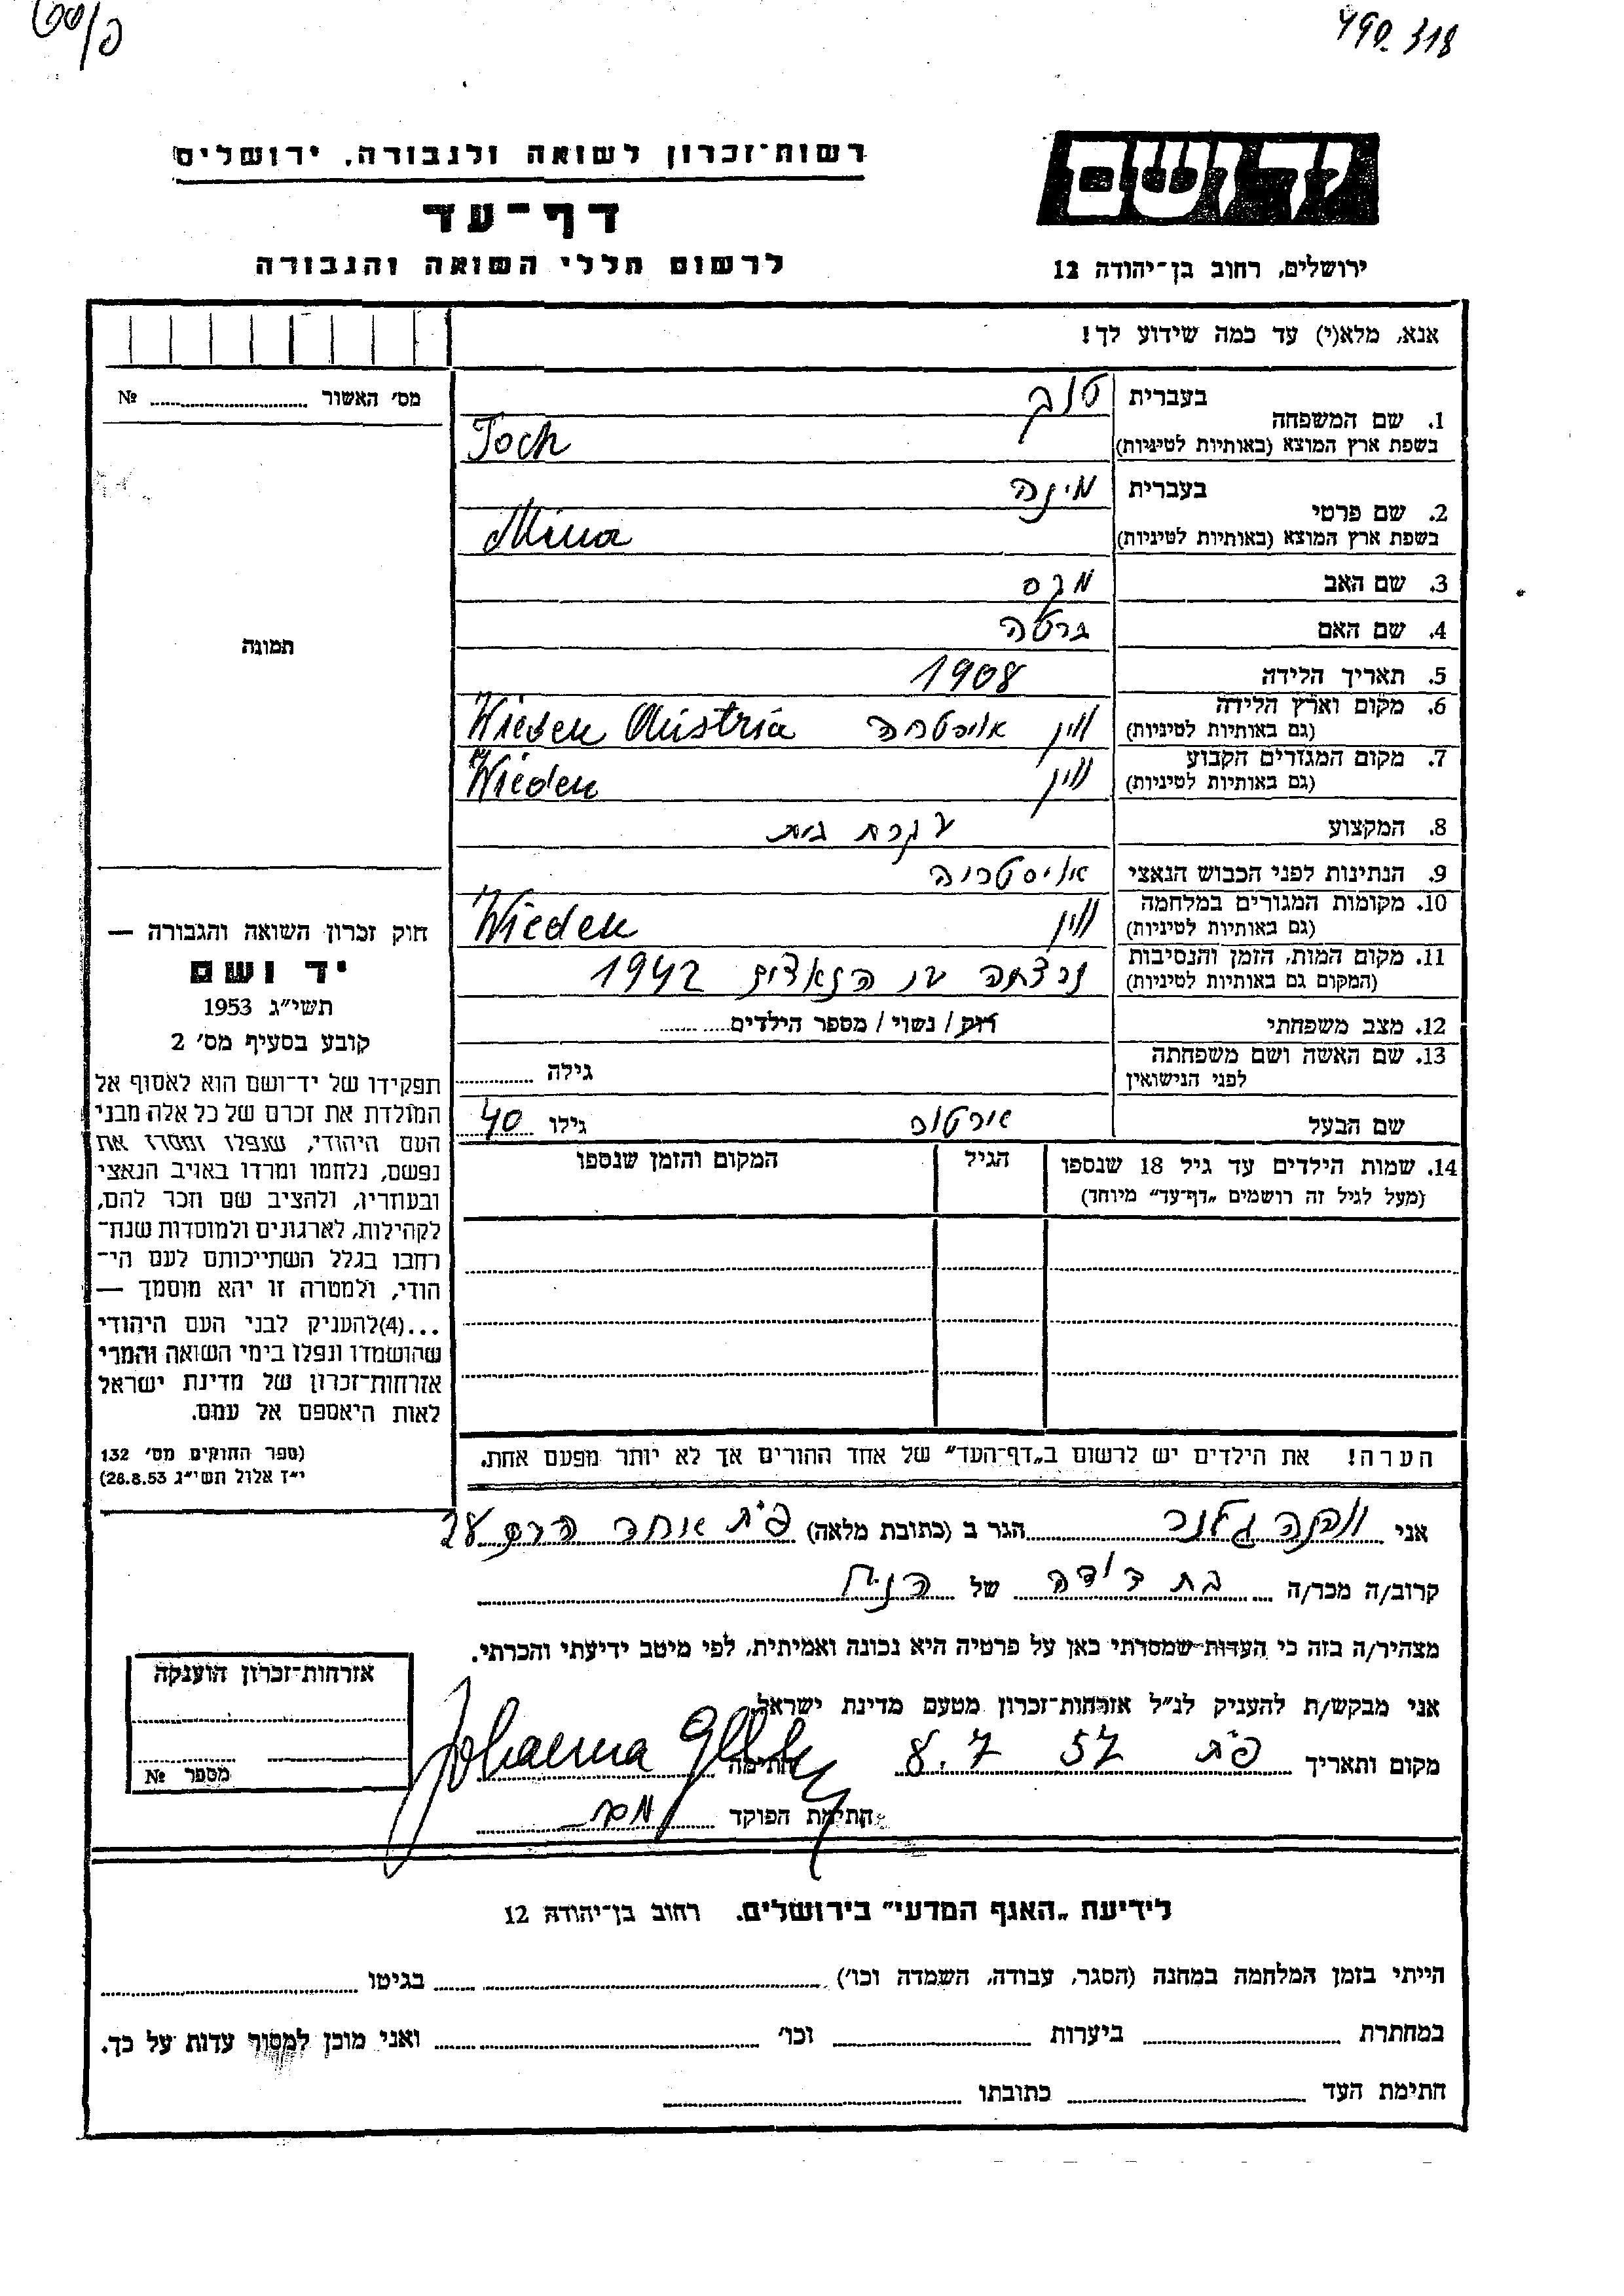 490.318
רשות־זכרון לשואה ולגבורה, ירושלים
דף־עד
לרשום חללי השואה והגבורה
יד ושם
ירושלים, רחוב בן־יהודה 12
אנא, מלא(י) עד כמה שידוע לך!
מס׳ האשור № 
1. שם המשפחה
בעברית טוך
בשפת ארץ המוצא (באותיות לטיניות) Toch
2. שם פרטי
בעברית מינה
בשפת ארץ המוצא (באותיות לטיניות) Mina
3. שם האב מכס
4. שם האם ברטה
5. תאריך הלידה 1908
6. מקום וארץ הלידה
(גם באותיות לטיניות) ווין אויסטריה Wieden Austria
7. מקום המגורים הקבוע
(גם באותיות לטיניות) ווין Wieden
8. המקצוע עקרת בית
9. הנתינות לפני הכבוש הנאצי אויסטריה
10. מקומות המגורים במלחמה
(גם באותיות לטיניות) ווין Wieden
11. מקום המות, הזמן והנסיבות
(המקום גם באותיות לטיניות) נרצחה ע״י הנאצים 1942
12. מצב משפחתי רוק / נשוי / מספר הילדים
13. שם האשה ושם משפחתה
לפני הנישואין גילה
שם הבעל גילו 40
14. שמות הילדים עד גיל 18 שנספו הגיל המקום והזמן שנספו
(מעל לגיל זה רושמים „דף־עד״ מיוחד)
הערה! את הילדים יש לרשום ב„דף־העד״ של אחד ההורים אך לא יותר מפעם אחת.
תמונה
חוק זכרון השואה והגבורה —
יד ושם
תשי״ג 1953
קובע בסעיף מס׳ 2
תפקידו של יד־ושם הוא לאסוף אל
המולדת את זכרם של כל אלה מבני
העם היהודי, שנפלו ומסרו את
נפשם, נלחמו ומרדו באויב הנאצי
ובעוזריו, ולהציב שם וזכר להם,
לקהילות, לארגונים ולמוסדות שנת־
רחבו בגלל השתייכותם לעם הי־
הודי, ולמטרה זו יהא מוסמך —
...(4)להעניק לבני העם היהודי
שהושמדו ונפלו בימי השואה והמרי
אזרחות־זכרון של מדינת ישראל
לאות היאספם אל עמם.
(ספר החוקים מס׳ 132
י״ז אלול תשי״ג 28.8.53)
אני הגר ב (כתובת מלאה) פ״ת אחד העם 28
קרוב/ה מכר/ה בת דודה של הנ״ל
מצהיר/ה בזה כי העדות שמסרתי כאן על פרטיה היא נכונה ואמיתית, לפי מיטב ידיעתי והכרתי.
אני מבקש/ת להעניק לנ״ל אזרחות־זכרון מטעם מדינת ישראל
מקום ותאריך פ״ת 8.7 57 חתימה Johanna
חתימת הפוקד
אזרחות־זכרון הוענקה
מספר №
לידיעת „האגף המדעי״ בירושלים. רחוב בן־יהודה 12
הייתי בזמן המלחמה במחנה (הסגר, עבודה, השמדה וכו׳) בגיטו
במחתרת ביערות וכו׳ ואני מוכן למסור עדות על כך.
חתימת העד כתובתו